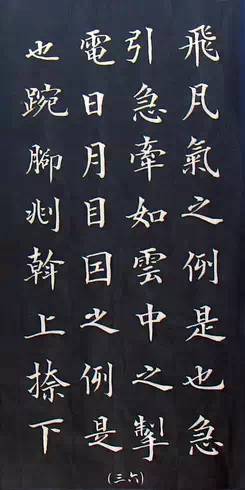 飛凡氣之例是也急
引急牽如雲中之掣
電日月目因之例是
也踠腳剔斡上捺下
(三六)